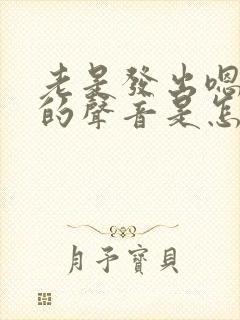 老是發出嗯
的聲音是怎
月子寶貝